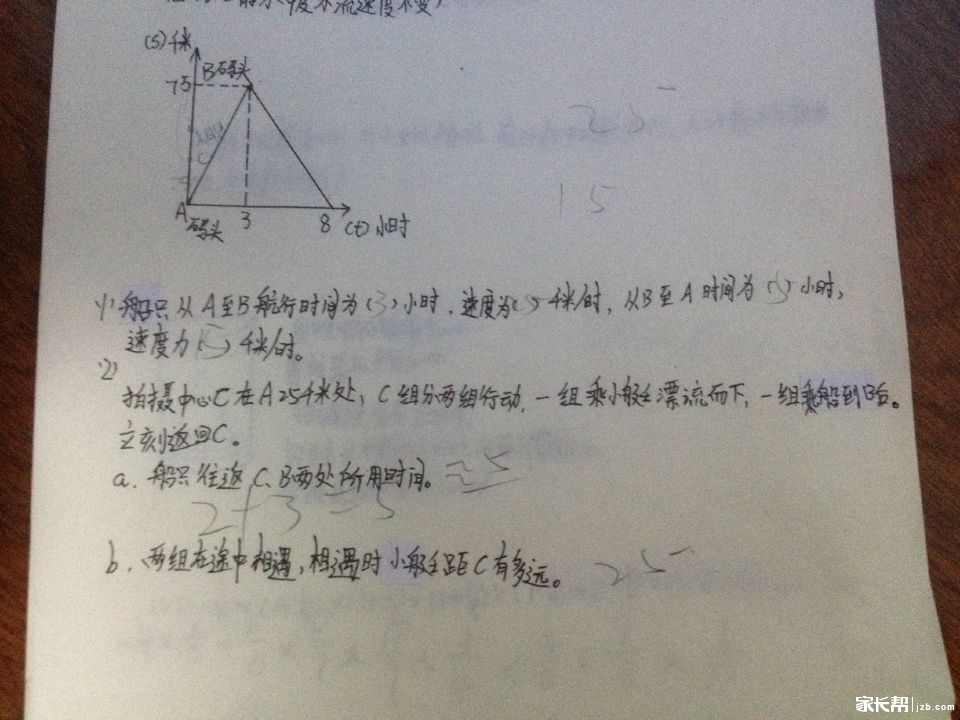 水流速度不变)
(S)千米
B码头
75
C
A
码头
3
8
(t)小时
25
15
(1)船只从A至B航行时间为(3)小时,速度为( )千米/时,从B至A时间为(5)小时,
速度为(15)千米/时。
(2)
拍摄中心C在A25千米处,C组分两组行动,一组乘小艇漂流而下,一组乘船到B后。
立刻返回C。
a.船只往返C、B两处所用时间。
2+3=5
b.两组在途中相遇,相遇时小艇距C有多远。
25
家长帮 jzb.com